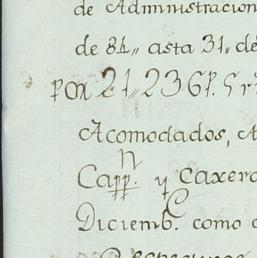 de Administracion
de 84,, asta 31,, de
por 21,,236 p. 5 r
Acomodados, A
Capp.n y caxero
Diciemb.e como